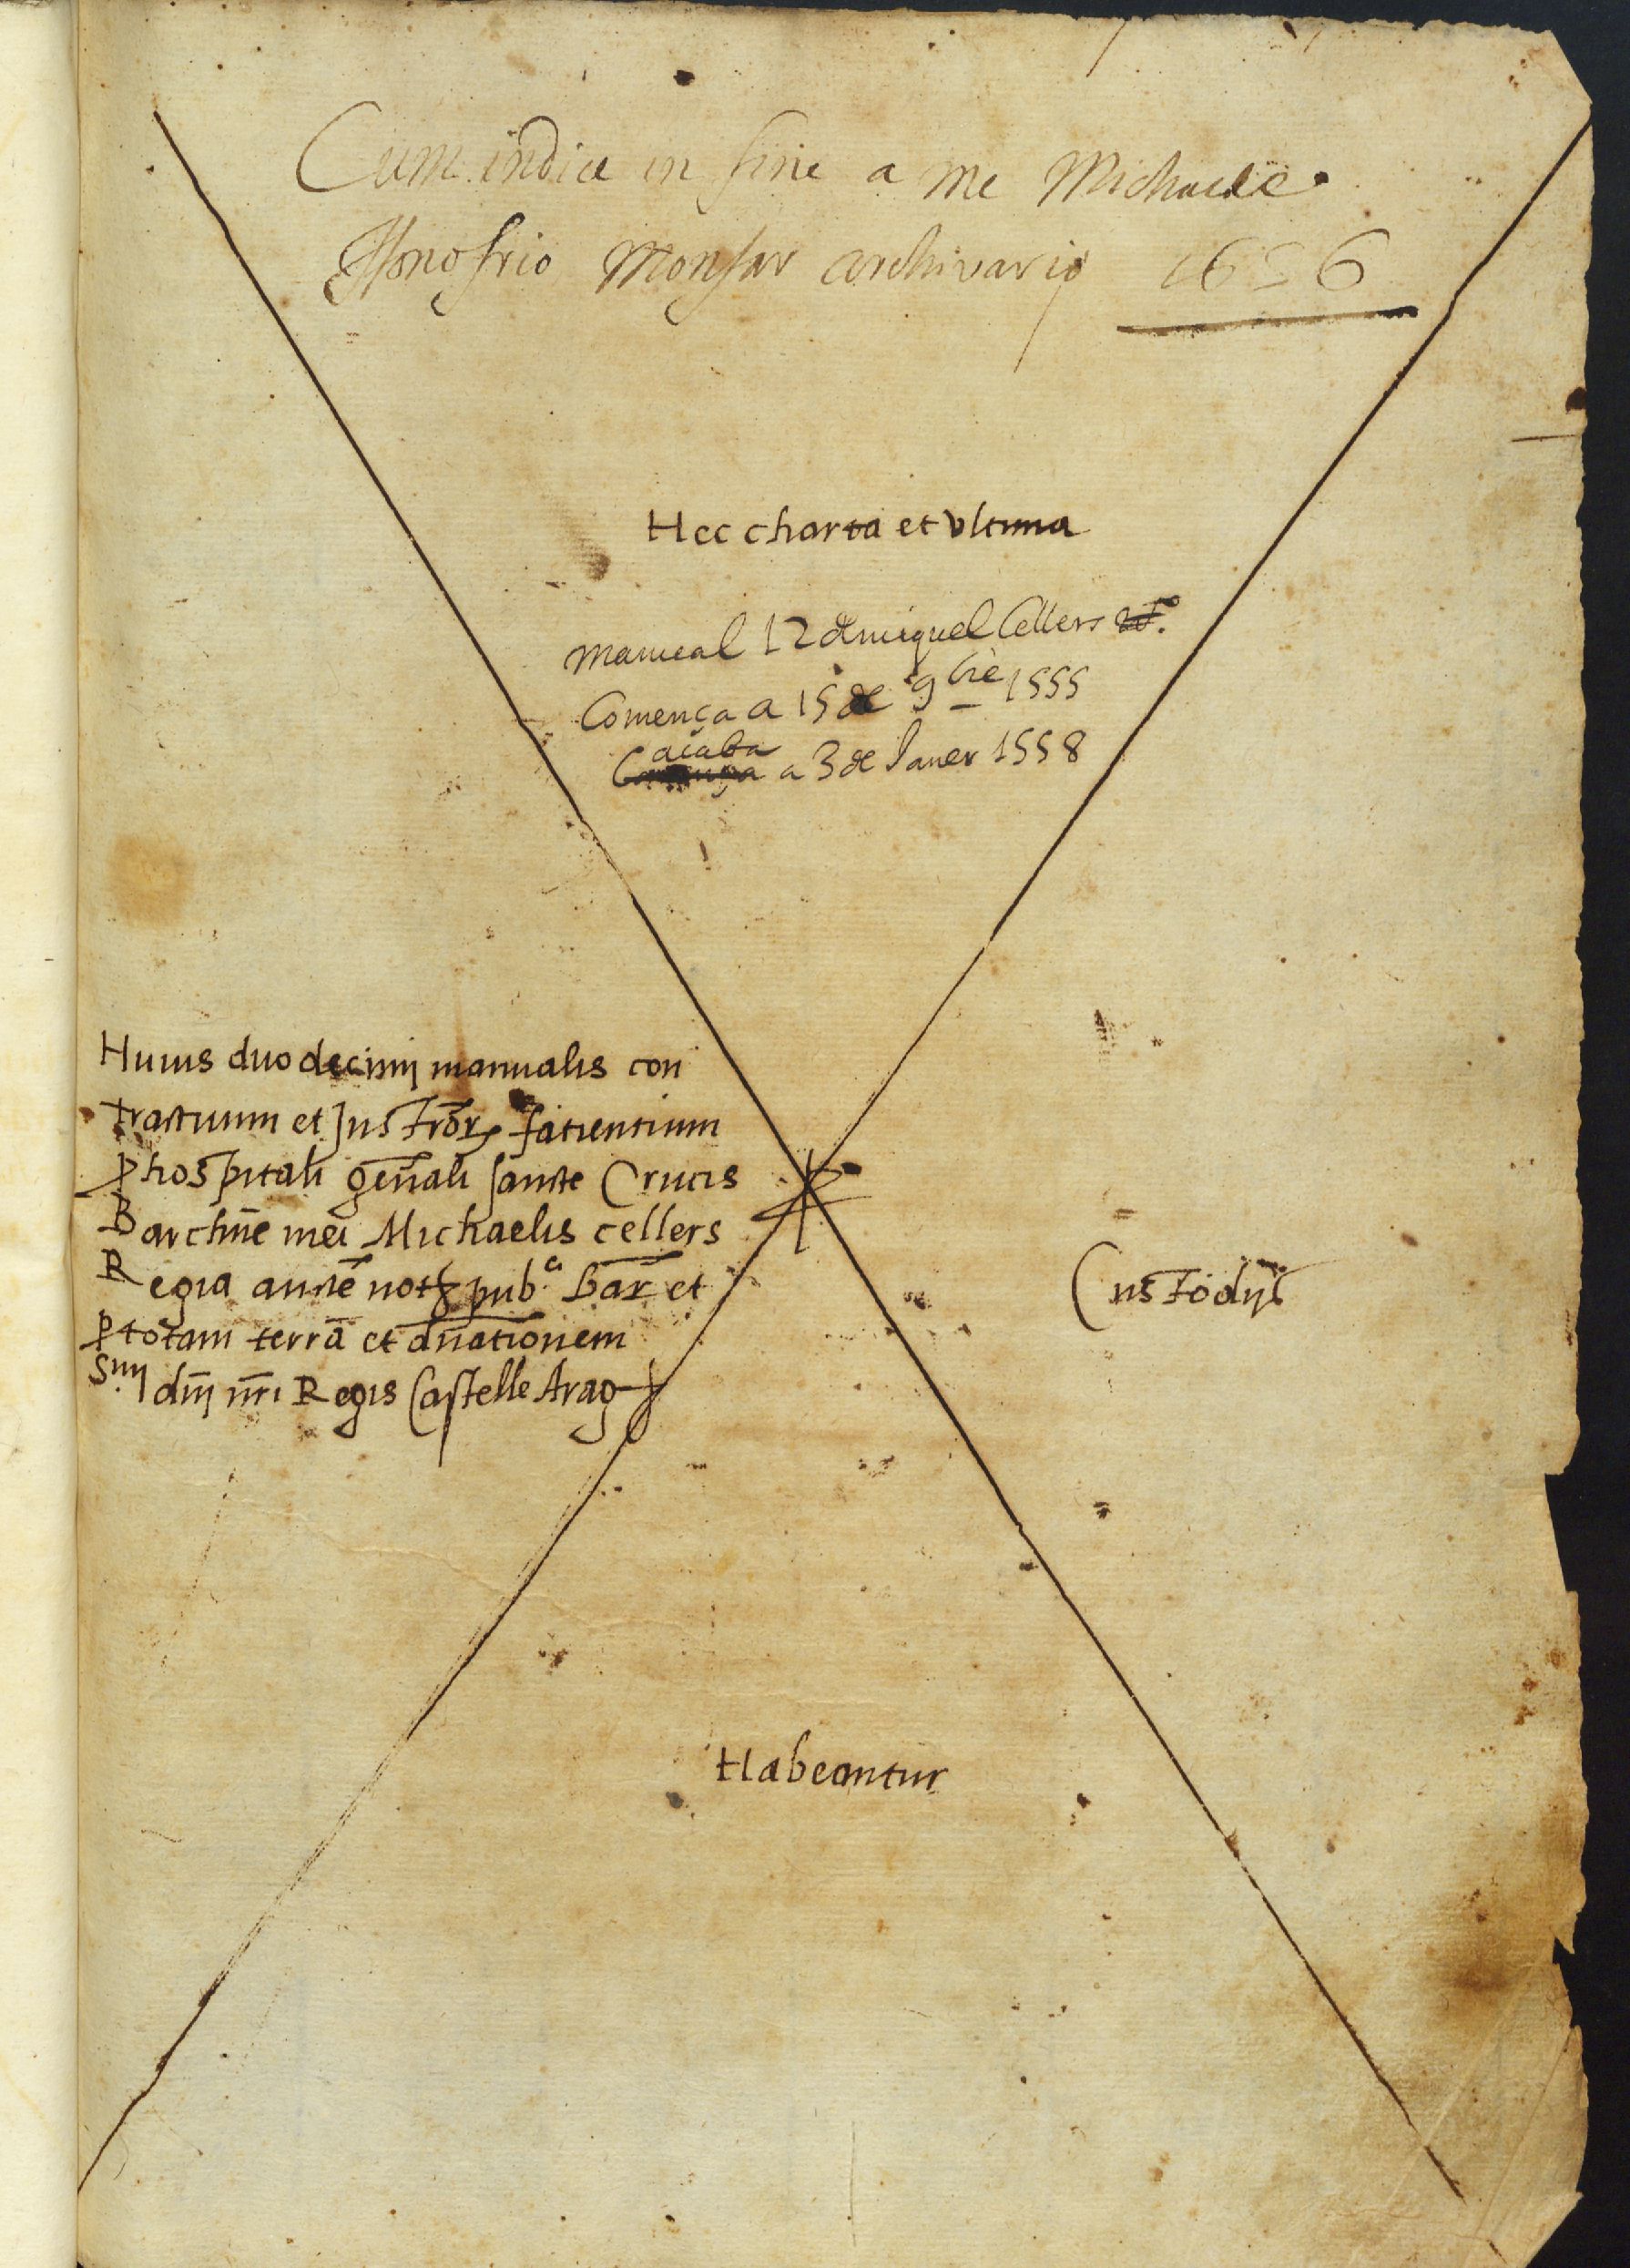 Cum indice in fine a me Michaele
Honofrio Monfar archivario 1656
Hec charta et vltima
manual 12 de miquel Cellers
Comença a 15 de 9bre 1555
acaba
a 3 de Janer 1558
Huius duodecimj manualis con
tractuum et Instror̄ fatientium
ꝑ hospitali gēnali sancte Crucis
Barchn̄e mei Michaelis cellers
Regia aucte noty pub.ci bar̄ et
ꝑ totam terrā et dn̄ationem
Smj dnj̄ nr̄i Regis Castelle Arag
Custodijs
Habeantur